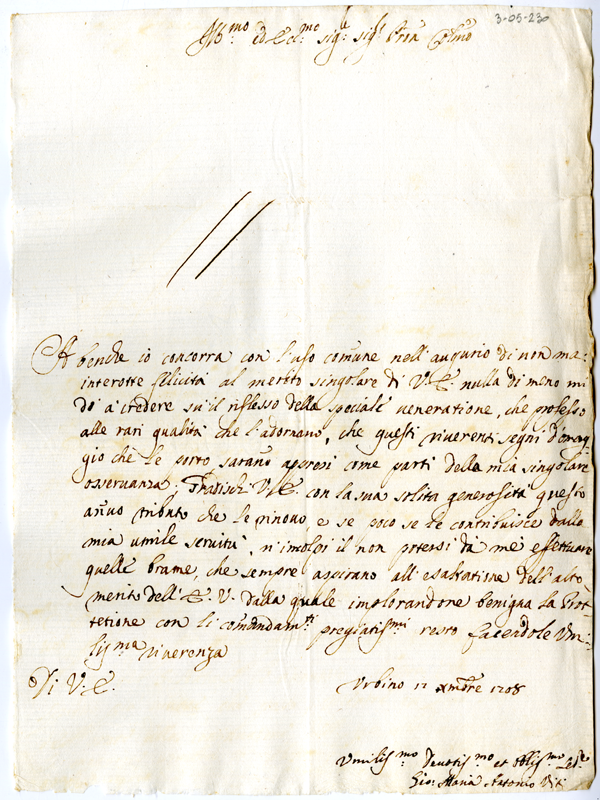 3-05-230
Ill.mo ed Ecc.mo Sig.r Sig.r Pron Col.mo
A benche io concorra con l'uso comune nell'augurio di non ma:
interotte felicità al merito singolare di V. E. nulla di meno mi
dò à credere su'il riflesso della speciale ueneratione, che professo
alle rari qualità che l'adornano, che questi riuerenti segni d'omag:
gio che le porto, sarano appresi come parti della mia singolare
osseruanza. Gradisch V. E. con la sua solita generosità questo
añuo tributo che le rinouo, e se poco se le contribuisce dalla
mia umile seruitù, n'incolpi il non potersi da me effettuare
quelle brame, che sempre aspirano all'esaltatione dell'alto
merito dell'E. V. dalla quale implorandone benigna la Prot:
tetione con li comandam.ti pregiatis.mi resto facendole Vmi:
lis.ma riuerenza
Di V. E.
Vrbino 12 xmbre 1708
Vmilis.mo Deuotis.mo et Obblis.mo
Gio: Maria Antonio Viti